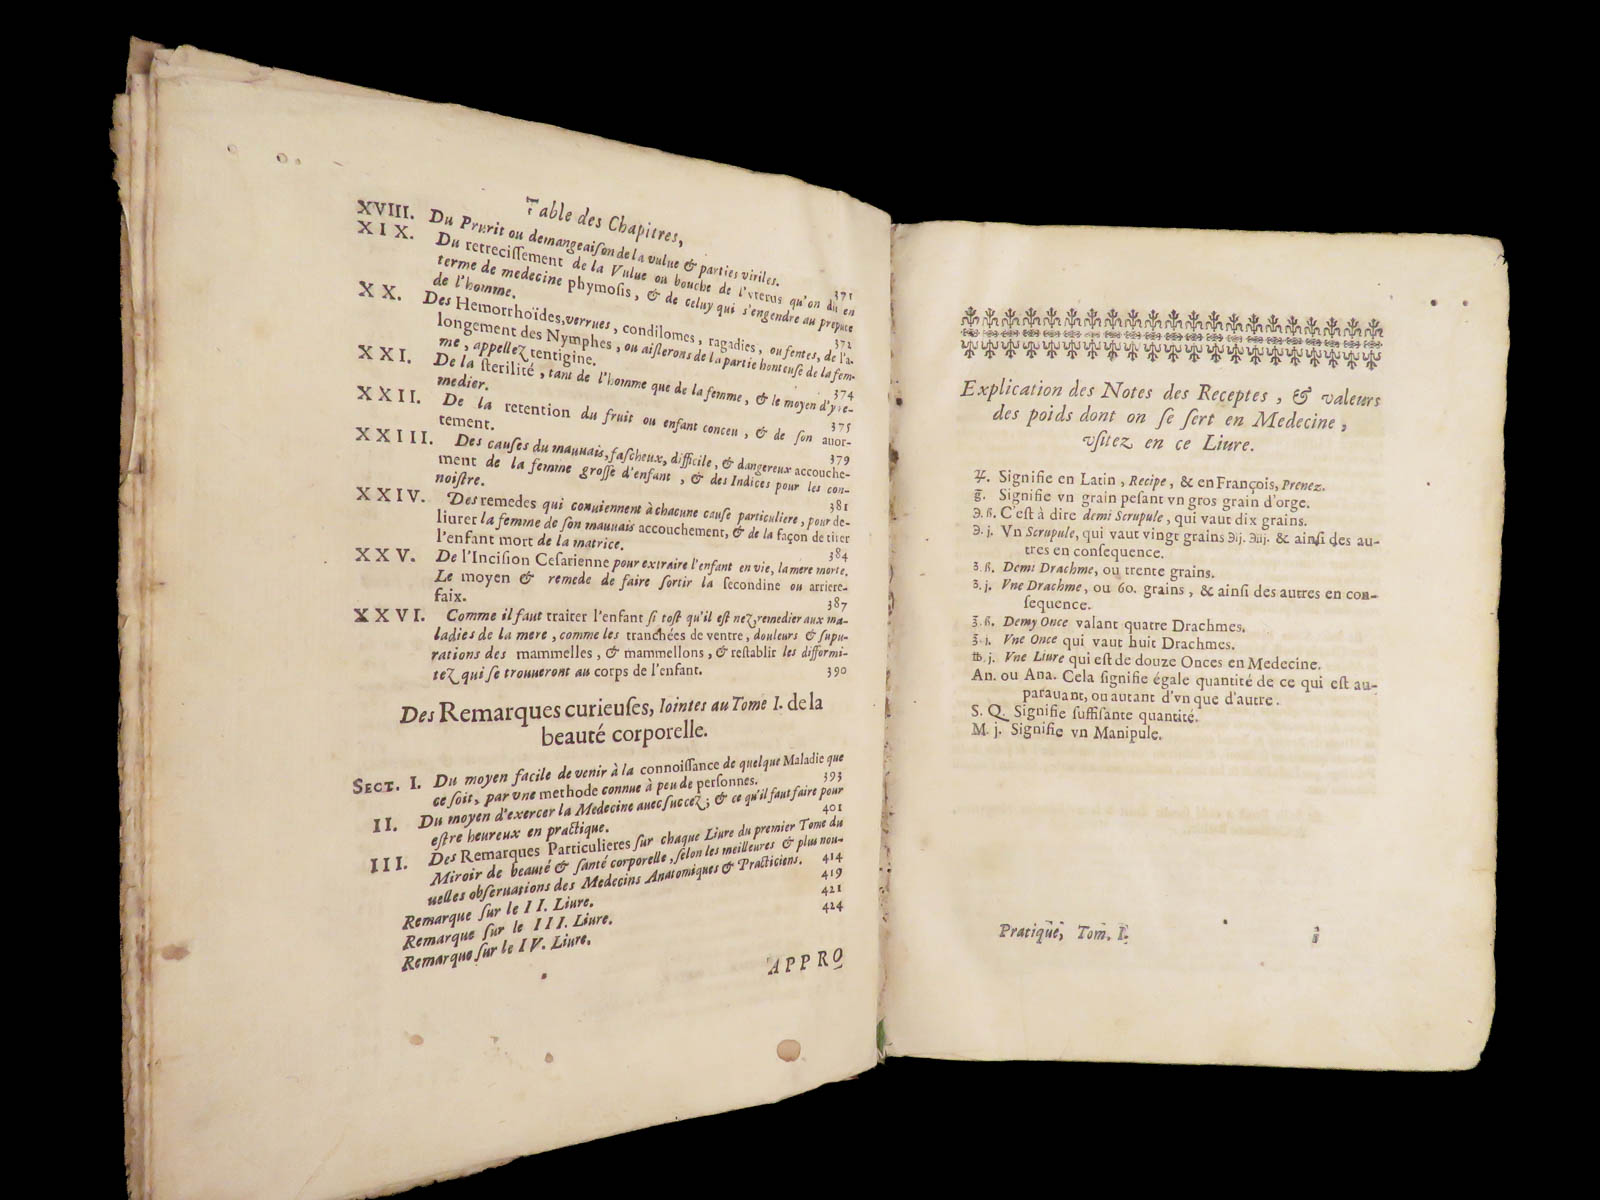 Table des Chapitres,
XVIII. Du Prurit ou demangeaiſon de la vulue & parties viriles. 371
XIX. Du retreciſſement de la Vulue ou bouche de l'vterus qu'on dit en
terme de medecine phymoſis, & de celuy qui s'engendre au prepuce
de l'homme. 372
XX. Des Hemorrhoïdes, verrues, condilomes, ragadies, ou fentes, de l'a-
longement des Nymphes, ou aiſlerons de la partie honteuſe de la fem-
me, appellez tentigine. 374
XXI. De la ſterilité, tant de l'homme que de la femme, & le moyen d'y re-
medier. 375
XXII. De la retention du fruit ou enfant conceu, & de ſon auor-
tement. 379
XXIII. Des cauſes du mauuais, faſcheux, difficile, & dangereux accouche-
ment de la femme groſſe d'enfant, & des Indices pour les con-
noiſtre. 381
XXIV. Des remedes qui conuiennent à chacune cauſe particuliere, pour de-
liurer la femme de ſon mauuais accouchement, & de la façon de titer
l'enfant mort de la matrice. 384
XXV. De l'Inciſion Ceſarienne pour extraire l'enfant en vie, la mere morte.
Le moyen & remede de faire ſortir la ſecondine ou arriere-
faix. 387
XXVI. Comme il faut traiter l'enfant ſi toſt qu'il eſt nez, remedier aux ma-
ladies de la mere, comme les tranchées de ventre, douleurs & ſupu-
rations des mammelles, & mammellons, & reſtablir les difformi-
tez qui ſe trouueront au corps de l'enfant. 390
Des Remarques curieuſes, Iointes au Tome I. de la
beauté corporelle.
SECT. I. Du moyen facile de venir à la connoiſſance de quelque Maladie que
ce ſoit, par vne methode connue à peu de perſonnes. 393
II. Du moyen d'exercer la Medecine auec ſuccez; & ce qu'il faut faire pour
eſtre heureux en practique. 401
III. Des Remarques Particulieres ſur chaque Liure du premier Tome du
Miroir de beauté & ſanté corporelle, ſelon les meilleures & plus nou-
uelles obſeruations des Medecins Anatomiques & Practiciens. 414
Remarque ſur le II. Liure. 419
Remarque ſur le III. Liure. 421
Remarque ſur le IV. Liure. 424
APPRO
Explication des Notes des Receptes, & valeurs
des poids dont on ſe ſert en Medecine,
vſitez en ce Liure.
℞. Signifie en Latin, Recipe, & en François, Prenez.
g̃. Signifie vn grain peſant vn gros grain d'orge.
℈. ß. C'eſt à dire demi Scrupule, qui vaut dix grains.
℈. j. Vn Scrupule, qui vaut vingt grains ℈ij. ℈iij. & ainſi des au-
tres en conſequence.
ʒ. ß. Demi Drachme, ou trente grains.
ʒ. j. Vne Drachme, ou 60. grains, & ainſi des autres en con-
ſequence.
℥. ß. Demy Once valant quatre Drachmes.
℥. j. Vne Once qui vaut huit Drachmes.
℔. j. Vne Liure qui eſt de douze Onces en Medecine.
An. ou Ana. Cela ſignifie égale quantité de ce qui eſt au-
parauant, ou autant d'vn que d'autre.
S. Q. Signifie ſuffiſante quantité.
M. j. Signifie vn Manipule.
Pratique, Tom. I. i